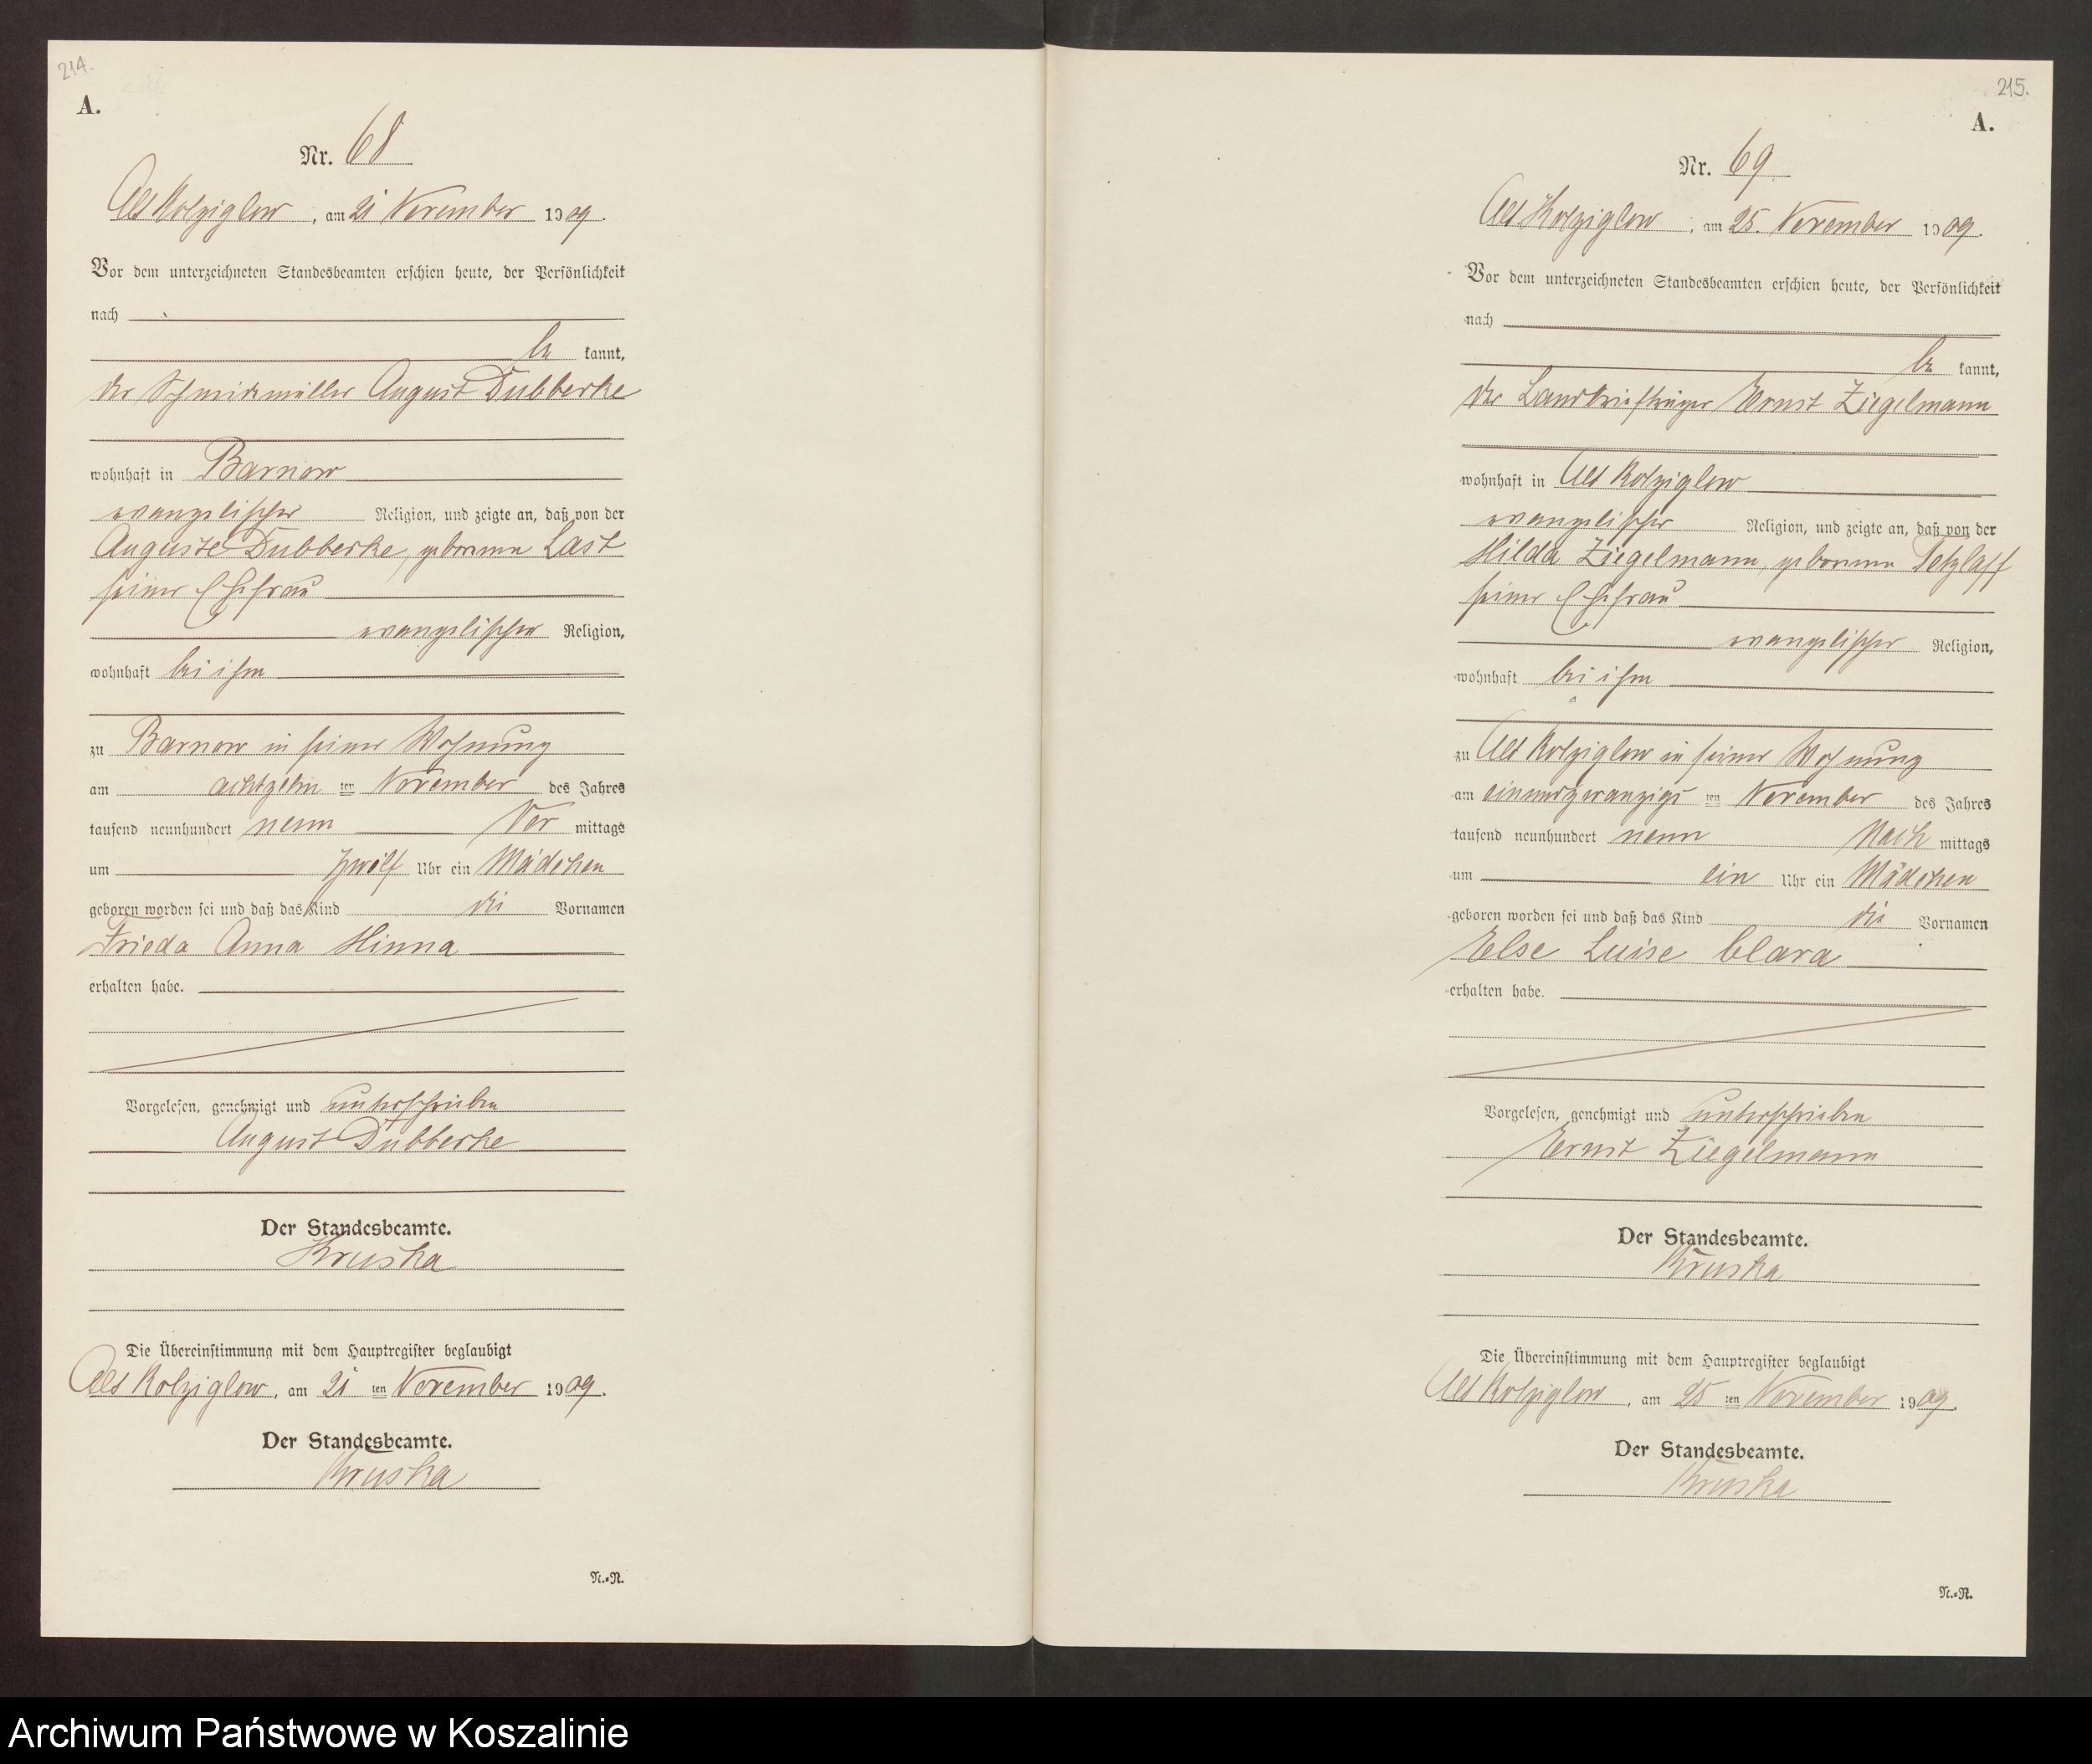 214.
A.
Nr. 68
Alt Kolziglow, am 21 November 1909.
Vor dem unterzeichneten Standesbeamten erschien heute, der Persönlichkeit
nach
be kannt,
der Schneidemüller August Dubberke
wohnhaft in Barnow
evangelischer Religion, und zeigte an, daß von der
Auguste Dubberke, geborenen Last
seiner Ehefrau
evangelischer Religion,
wohnhaft bei ihm
zu Barnow in seiner Wohnung
am achtzehn ten November des Jahres
tausend neunhundert neun Vor mittags
um zwölf Uhr ein Mädchen
geboren worden sei und daß das Kind die Vornamen
Frieda Anna Minna
erhalten habe.
Vorgelesen, genehmigt und unterschrieben
August Dubberke
Der Standesbeamte.
Kruska
Die Übereinstimmung mit dem Hauptregister beglaubigt
Alt Kolziglow, am 21 ten November 1909.
Der Standesbeamte.
Kruska
N.=R.
215.
A.
Nr. 69
Alt Kolziglow, am 25. November 1909.
Vor dem unterzeichneten Standesbeamten erschien heute, der Persönlichkeit
nach
be kannt,
der Landbriefträger Ernst Ziegelmann
wohnhaft in Alt Kolziglow
evangelischer Religion, und zeigte an, daß von der
Hilda Ziegelmann, geborenen Tetzlaff
seiner Ehefrau
evangelischer Religion,
wohnhaft bei ihm
zu Alt Kolziglow in seiner Wohnung
am einundzwanzigs ten November des Jahres
tausend neunhundert neun Nach mittags
um ein Uhr ein Mädchen
geboren worden sei und daß das Kind die Vornamen
Else Luise Clara
erhalten habe.
Vorgelesen, genehmigt und unterschrieben
Ernst Ziegelmann
Der Standesbeamte.
Kruska
Die Übereinstimmung mit dem Hauptregister beglaubigt
Alt Kolziglow, am 25 ten November 1909.
Der Standesbeamte.
Kruska
N.=R.
Archiwum Państwowe w Koszalinie